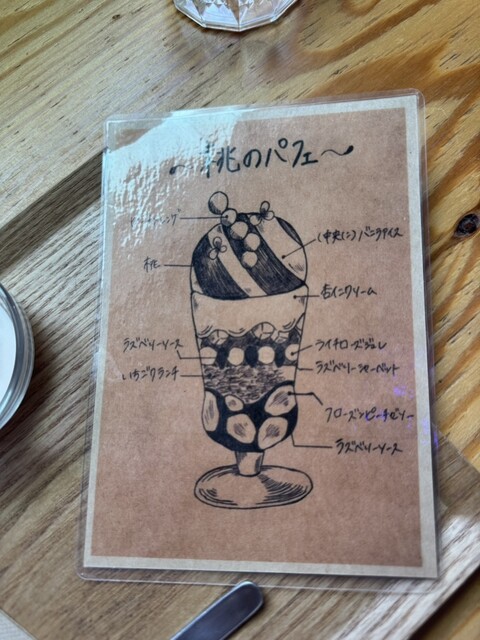 ～桃のパフェ～
(中央に)バニラアイス
桃
杏仁クリーム
ラズベリーソース
ライチローズジュレ
いちごクランチ
ラズベリーシャーベット
フローズンピーチゼリー
ラズベリーソース